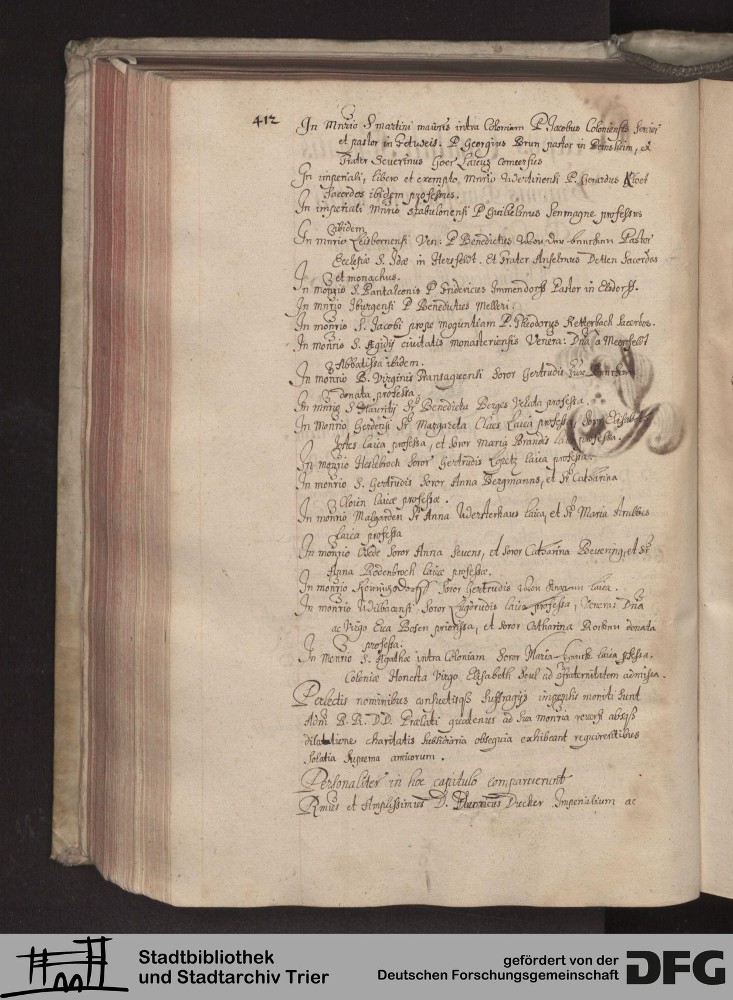 412
In Mnrio S Martini maioris intra Coloniam P Jacobus Coloniensis Senior
et pastor in P. Georgius Brun pastor in et
Frater Severinus Goer Laicus conversus
In imperiali, libero et exempto Mnrio Werthinensi P. Gerardus Kloet
Sacerdos ibidem professus.
In imperiali Mnrio Stabulonensi P Guilielmus Senmagne professus
ibidem
In mnrio Leisbornensi Ven: P Benedictus Pastor
Ecclesiæ S. Idæ in Hersfeldt. Et Frater Anselmus Detten Sacerdos
et monachus.
In monrio S. Pantaleonis P Fridericus Immendorff Pastor in Elsdorff.
In mnrio Iburgensi P Benedictus Melleri.
In monrio S. Jacobi prope moguntiam P. Theodorus Ketterbach Sacerdos.
In monrio S. Ægidij civitatis monasteriensis Venera: Dna a
Abbatissa ibidem.
In monrio B. Virginis Transaquensi Soror Gertrudis
donata professa.
In mnrio S Mauritij Sr Benedicta Berges Velata professa.
In Monrio Gerdensi Sr Margareta Claes Laica professa, Soror Elisabet
laica professa, et Soror Maria Brandis laica professa.
In monrio Heslebroch Soror Gertrudis laica professa.
In monrio S. Gertrudis Soror Anna Bergmanns, et Sr Catharina
laicæ professæ.
In monrio Malgarden Sr Anna laica, et Sr Maria
laica professa
In monrio Oede Soror Anna Sevens, et Soror Catharina Bevering, et Sr
Anna Rodenbroch laicæ professæ.
In monrio Soror Gertrudis laica.
In monrio Wilbacensi Soror laica professa, Venera: Dna
ac Virgo Eva Bosen priorissa, et Soror Catharina donata
professa.
In Monrio S. Agathæ intra Coloniam Soror Maria laica pfessa.
Coloniæ Honesta Virgo Elisabeth ad cōfraternitatem admissa.
Prælectis nominibus consuetisqs suffragijs impensis moniti sunt
Adm R.R. D.D. Prælati quatenus ad sua monria reversi absqs
dilatione charitatis subsidiaria obsequia exhibeant requirentibus
solatia suprema amicorum.
Personaliter in hoc capitulo comparuerunt
Rmus et Amplissimus D. Henricus Ducker Imperialium ac
Stadtbibliothek
und Stadtarchiv Trier
gefördert von der
Deutschen Forschungsgemeinschaft
DFG